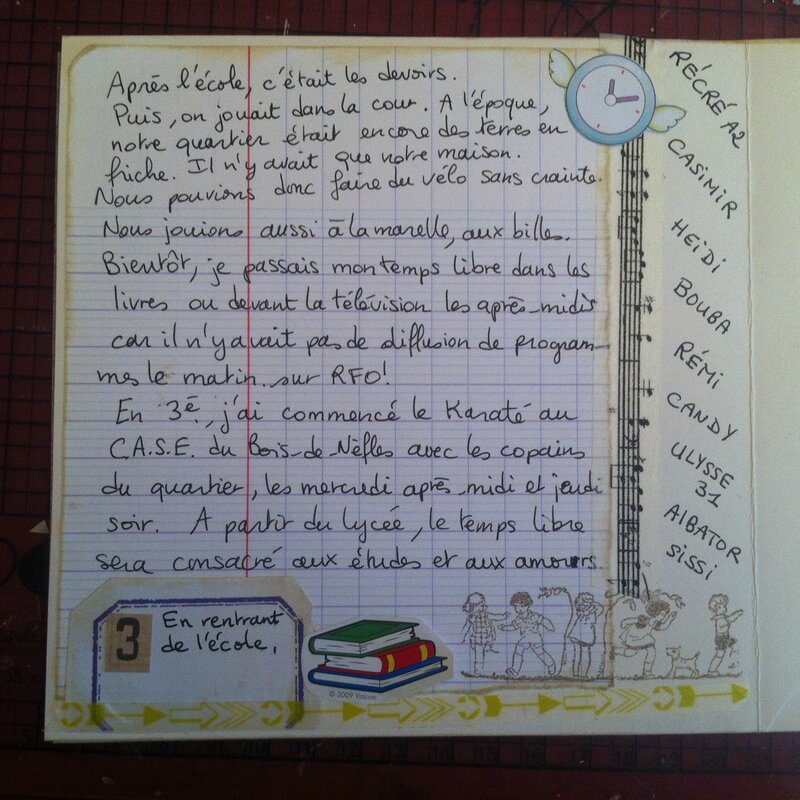 Après l'école, c'était les devoirs.
Puis, on jouait dans la cour. A l'époque,
notre quartier était encore des terres en
friche. Il n'y avait que notre maison.
Nous pouvions donc faire du vélo sans crainte.
Nous jouions aussi à la marelle, aux billes.
Bientôt, je passais mon temps libre dans les
livres ou devant la télévision les après-midis
car il n'y avait pas de diffusion de program-
mes le matin sur RFO!
En 3è, j'ai commencé le Karaté au
C.A.S.E. du Bois-de-Nèfles avec les copains
du quartier, les mercredi après-midi et jeudi
soir. A partir du lycée, le temps libre
sera consacré aux études et aux amours
3
En rentrant
de l'école.
© 2009 Viacom
RÉCRÉ A2
CASIMIR
HEIDI
BOUBA
RÉMI
CANDY
ULYSSE
31
AlBATOR
SISSI